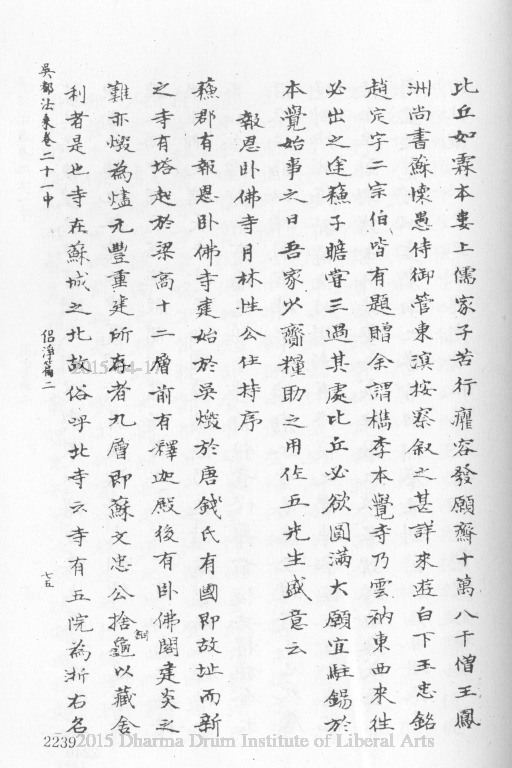 比丘如霖本婁上儒家子苦行龐容發願齋十萬八千僧王鳳
洲尚書蘇懷愚侍御管東溟按察叙之甚詳來遊白下王忠銘
趙定宇二宗伯皆有題贈余謂檇李本覺寺乃雲衲東西來往
必出之途蘓子瞻嘗三過其處比丘必欲圓滿大願宜駐錫於
本覺始事之日吾家以齋糧助之用佐五先生盛意云
報恩卧佛寺月林性公住持序
蘓郡有報恩卧佛寺建始於吳燬於唐錢氏有國即故址而新
之寺有塔起於梁高十二層前有釋迦殿後有卧佛閣建炎之
難亦燬為燼元豐重建所存者九層即蘇文忠公捨龜以藏舍
利者是也寺在蘇城之北故俗呼北寺云寺有五院為浙右名
吳都法乘卷二十一中
侶淨篇二
七五
2239
2015 Dharma Drum Institute of Liberal Arts